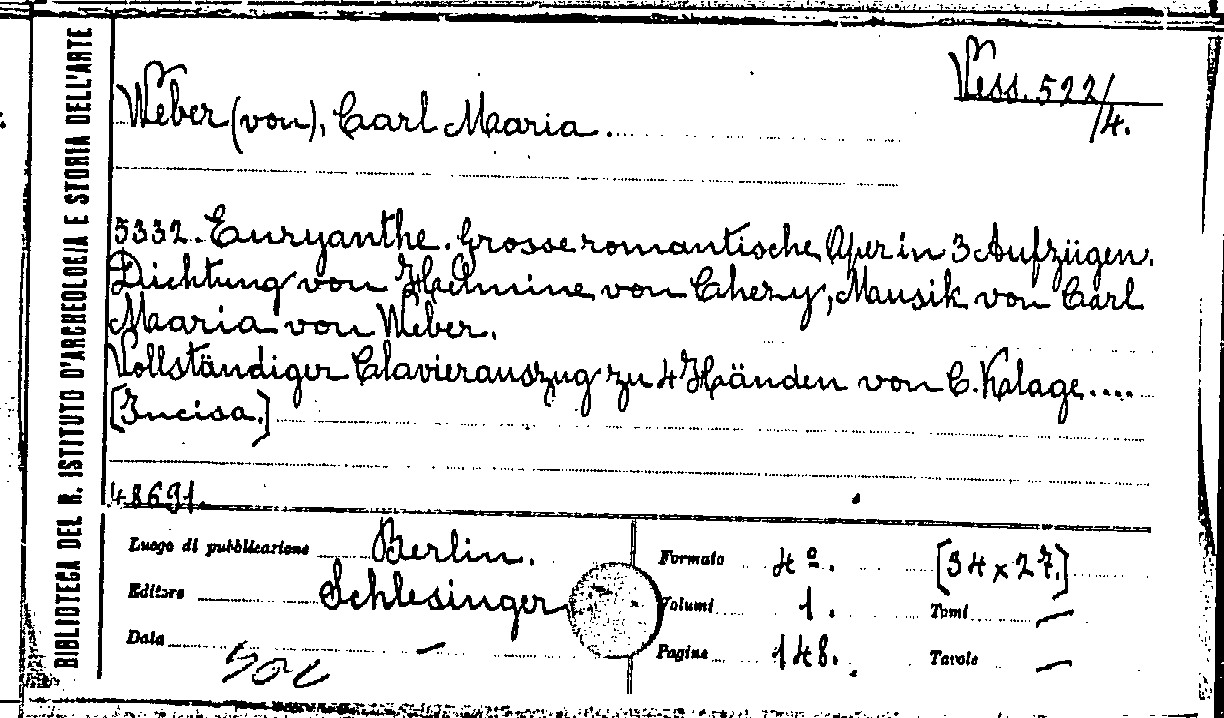 BIBLIOTECA DEL R. ISTITUTO D'ARCHEOLOGIA E STORIA DELL'ARTE
Vess. 522/4.
Weber (von), Carl Maria.
5332. Euryanthe. Grosse romantische Oper in 3 Aufzügen.
Dichtung von Helmine von Chezy, Musik von Carl
Maria von Weber.
Vollständiger Clavierauszug zu 4 Händen von C. Klage....
[Incisa.]
48691.
Luogo di pubblicazione Berlin.
Editore Schlesinger
Data —
Formato 4º. [34 x 27.]
Volumi 1. Tomi —
Pagine 148. Tavole —